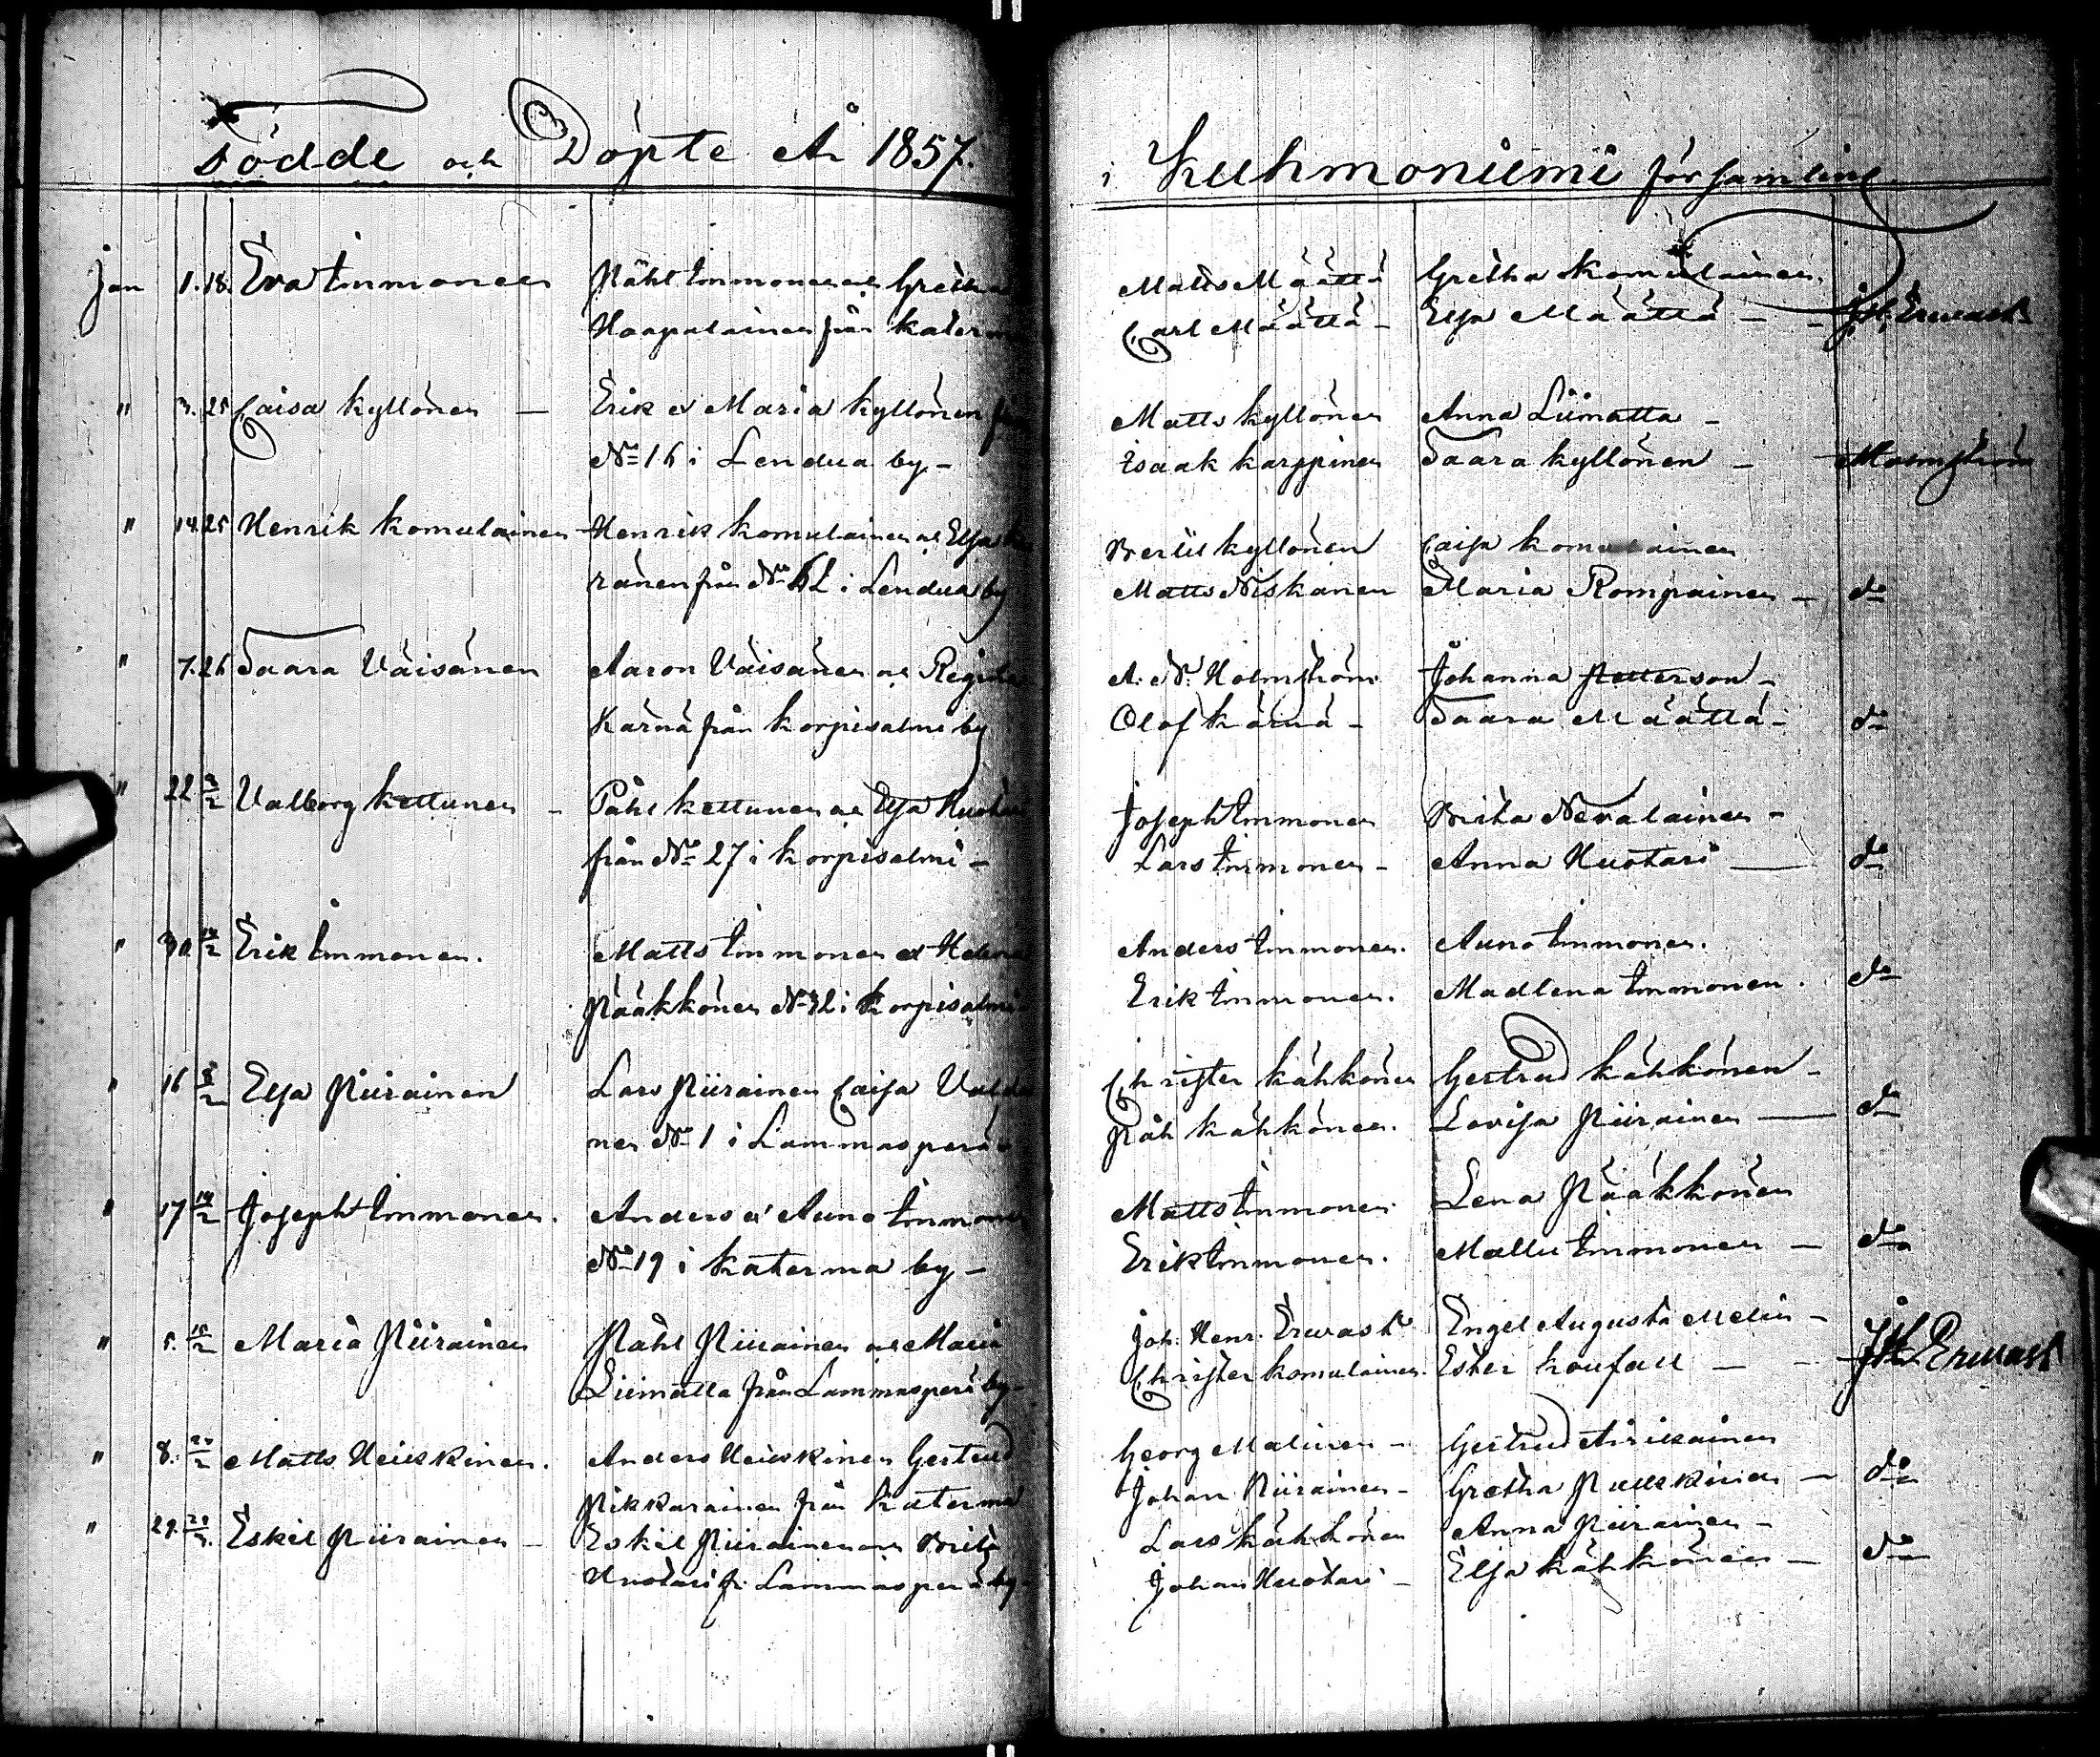 Födde och Döpte År 1857.
Jan 1. 18. Eva Immonen Påhl Immonen och Gretha
Haapalainen från Katerma
" 3. 25 Caisa Kyllönen — Erik & Maria Kyllönen från
No 16 i Lendua by –
" 14 25 Henrik Komulainen Henrik Komulainen o Elsa
ranen från No i Lendua by
" 7. 26 Saara Väisänen Aaron Väisänen o Regina
Kärnä från Korpisalmi by
" 22 Valborg Kettunen – Påhl Kettunen o Elsa Huotari
från No 27 i Korpisalmi –
" 30 Erik Immonen. Matts Immonen & Helena
Pääkkönen No 32 i Korpisalmi
" 16 8/2 Elsa Piirainen Lars Piirainen Caisa
nen No 1 i Lammasperä
" 17 14/2 Joseph Immonen. Anders & Auno Immonen
No 19 i Katerma by –
" 5. 15/2 Maria Piirainen Påhl Piirainen o Maria
Liimatta från Lammasperä by –
" 8. Matts Heiskinen. Anders Heiskinen Gertrud
Pikkarainen från Katerma
" 29. Eskil Piirainen – Eskil Piirainen o Brita
Huotari fr. Lammasperä by
i Kuhmoniemi församling
Matts Määttä Gretha Komulainen.
Carl Määttä – Elsa Määttä – – J. H. Erwast
Matts Kyllönen Anna Liimatta –
Isaak Karppinen Saara Kyllönen – Holmström
Bertil Kyllönen Caisa Komulainen
Matts Niskanen Maria Rompainen – do
A. N. Holmström Johanna Petterson –
Olof Kärnä – Saara Määttä – do
Joseph Immonen Brita Nevalainen –
Lars Immonen – Anna Huotari — do
Anders Immonen. Auno Immonen.
Erik Immonen. Madlena Immonen. do
Christer Kähkönen Gertrud Kähkönen –
Påhl Kähkönen. Lovisa Piirainen — do
Matts Immonen Lena Pääkkönen
Erik Immonen. Mallu Immonen – do
Joh. Henr. Erwast Engel Augusta Melin –
Christer Komulainen. Ester – – J H Erwast
Georg Malinen – Gertrud
Johan Piirainen – Gretha – do
Lars Kähkönen Anna Piirainen –
Johan Huotari – Elsa Kähkönen – do